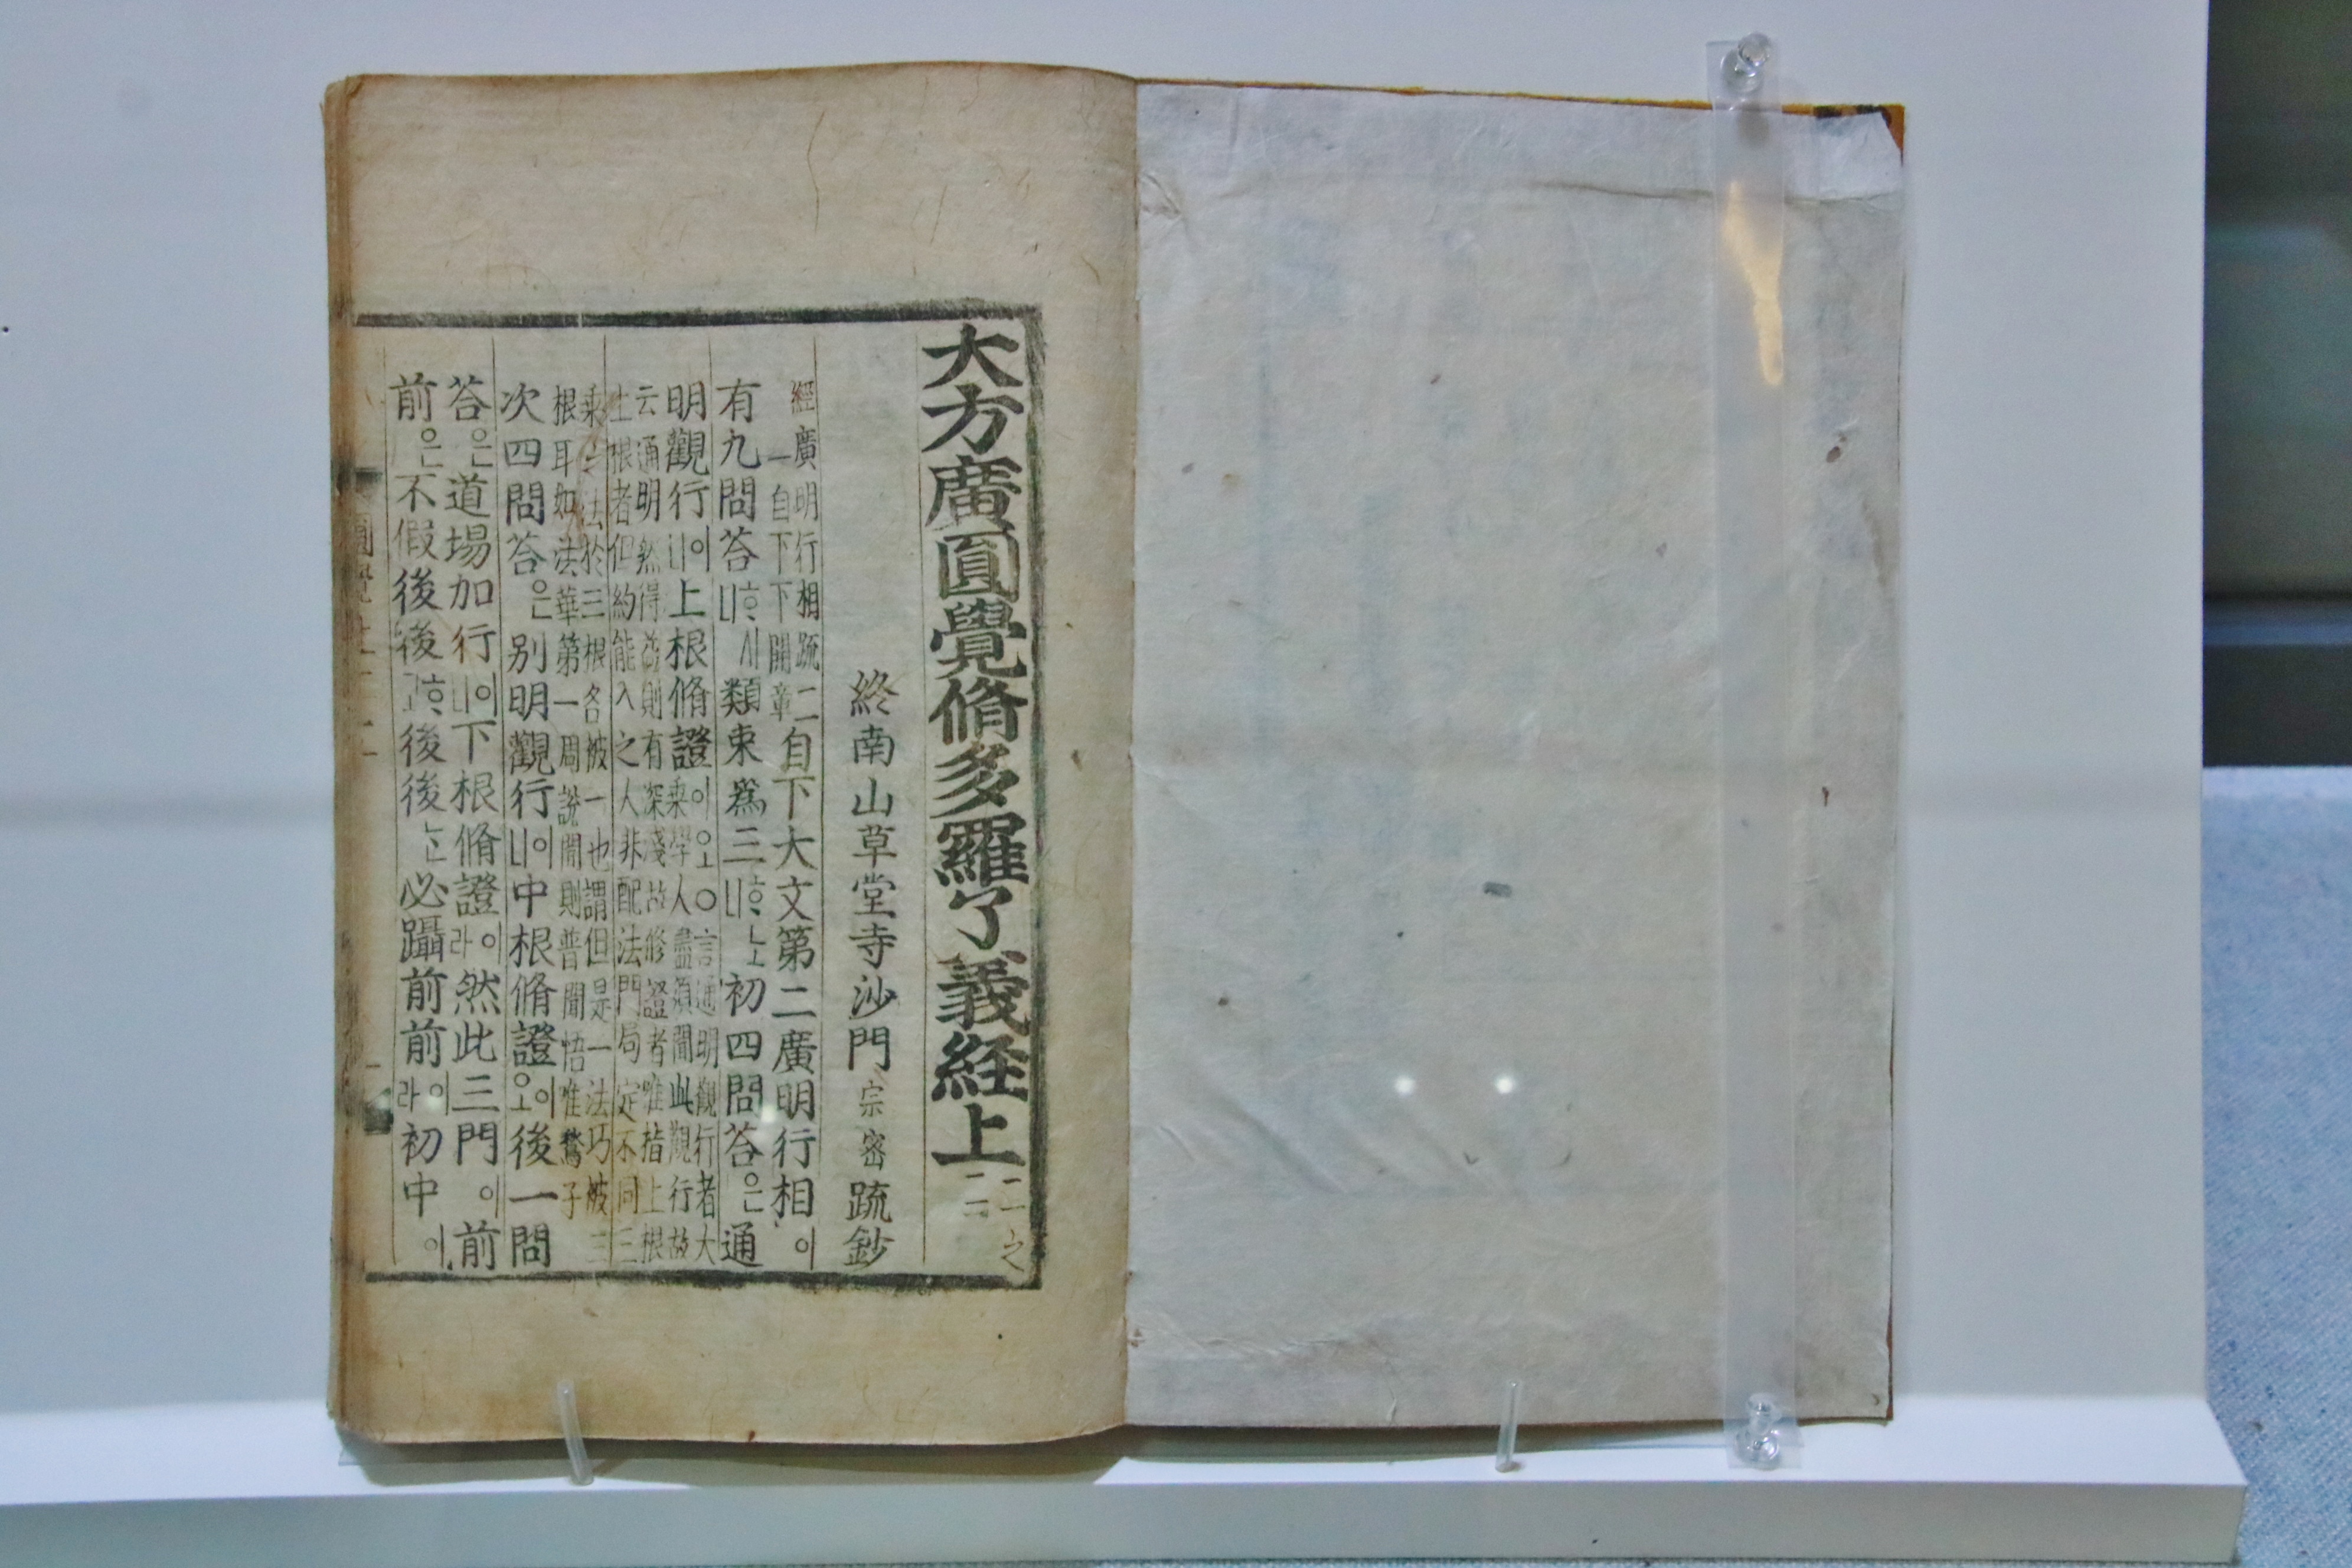 大方廣圓覺脩多羅了義経上二之
終南山草堂寺沙門宗密疏鈔
經廣明行相疏二一自下下開章自下大文第二廣明行相이
有九問荅ᄒᆞ시니類束爲三ᄒᆞ노니初四問荅은通
明觀行이니上根脩證이오○言通明觀行者大乘學人盡須聞此觀行故
云通明然得益則有深淺故修證者唯指上根上根者但約能入之人非配法門局定不同三
乘之法於三根各被一也謂但是一法巧被三根耳如法華第一周說聞則普聞悟唯鶖子
次四問荅은別明觀行이니中根脩證이오後一問
荅은道場加行이니下根脩證이라然此三門이前
前은不假後後ᄒᆞ고後後ᄂᆞᆫ必躡前前이라初中이
圓覺上